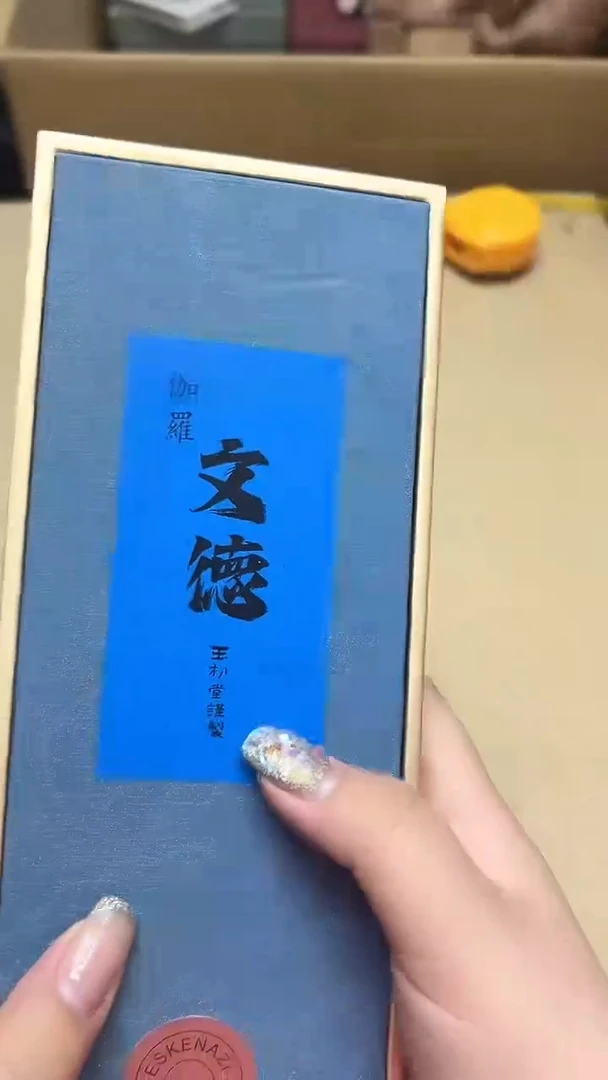 伽羅
文德
玉初堂謹製
ESKENAZI